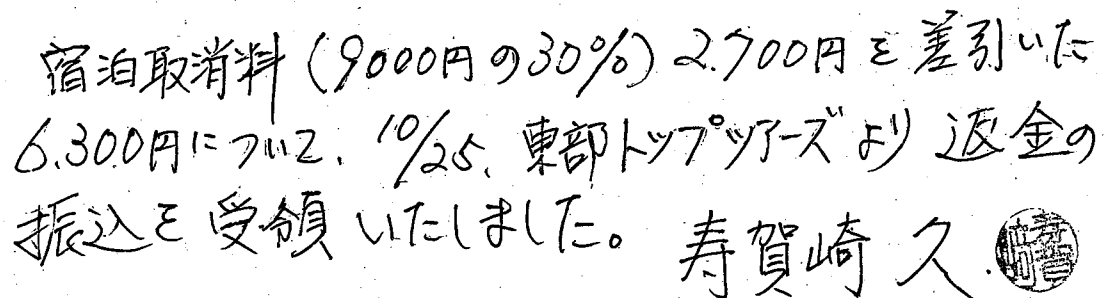 宿泊取消料(9000円の30%)2.700円を差引いた
6.300円について、10/25、東部トップツアーズより返金の
振込を受領いたしました。 寿賀崎 久